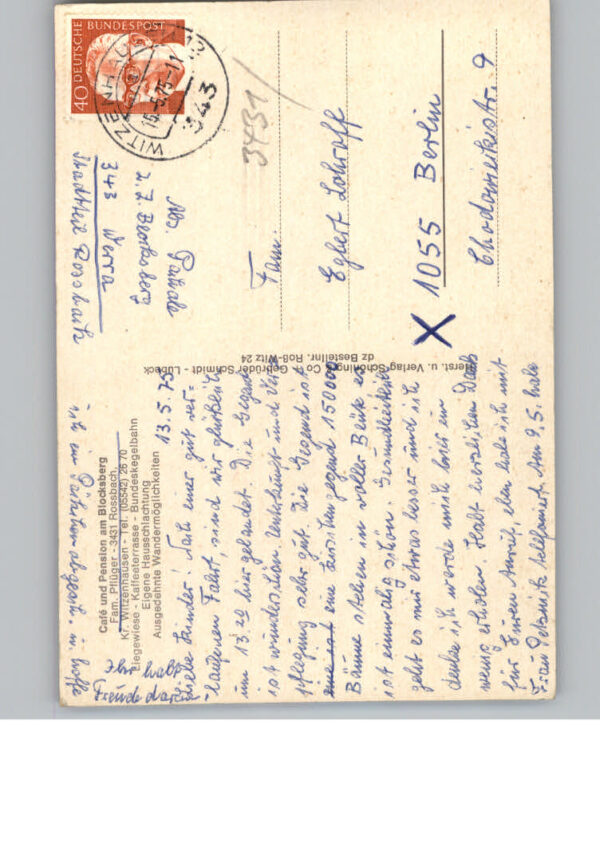 Café und Pension am Blocksberg
Fam. Pflüger - 3431 Rossbach,
Kr. Witzenhausen - Tel. (05542) 2670
Liegewiese - Kaffeeterrasse - Bundeskegelbahn
Eigene Hausschlachtung
Ausgedehnte Wandermöglichkeiten
13.5.75
Liebe Kinder! Nach einer gut ver=
laufenen Fahrt, sind wir glücklich
um 13.20 hier gelandet. Die Gegend
ist wunderschön Unterkunft und Ver=
pflegung sehr gut. Die Gegend ist
eine ist eine Kirschengegend 150000
Bäume stehen in voller Blüte es
ist einmalig schön. Gesundheitlich
geht es mir etwas besser und ich
denke ich werde mich hier ein
wenig erholen. Habt herzlichen Dank
für Euren Anruf, eben habe ich mit
Frau telefoniert. Am 9.5. habe
ich ein Päckchen abgesch. u. hoffe
Ihr habt
Freude daran
Herst. u. Verlag Schöning & Co + Gebrüder Schmidt - Lübeck
dz Bestellnr. Roß-Witz 24
DEUTSCHE BUNDESPOST
40
WITZENHAUSEN 12
15.5.75-11
343
3431
Abs.
z. Z. Blocksberg
343 Werra
Stadtteil Rossbach
Fam.
Egbert
X 1055 Berlin
Chodowieckistr. 9